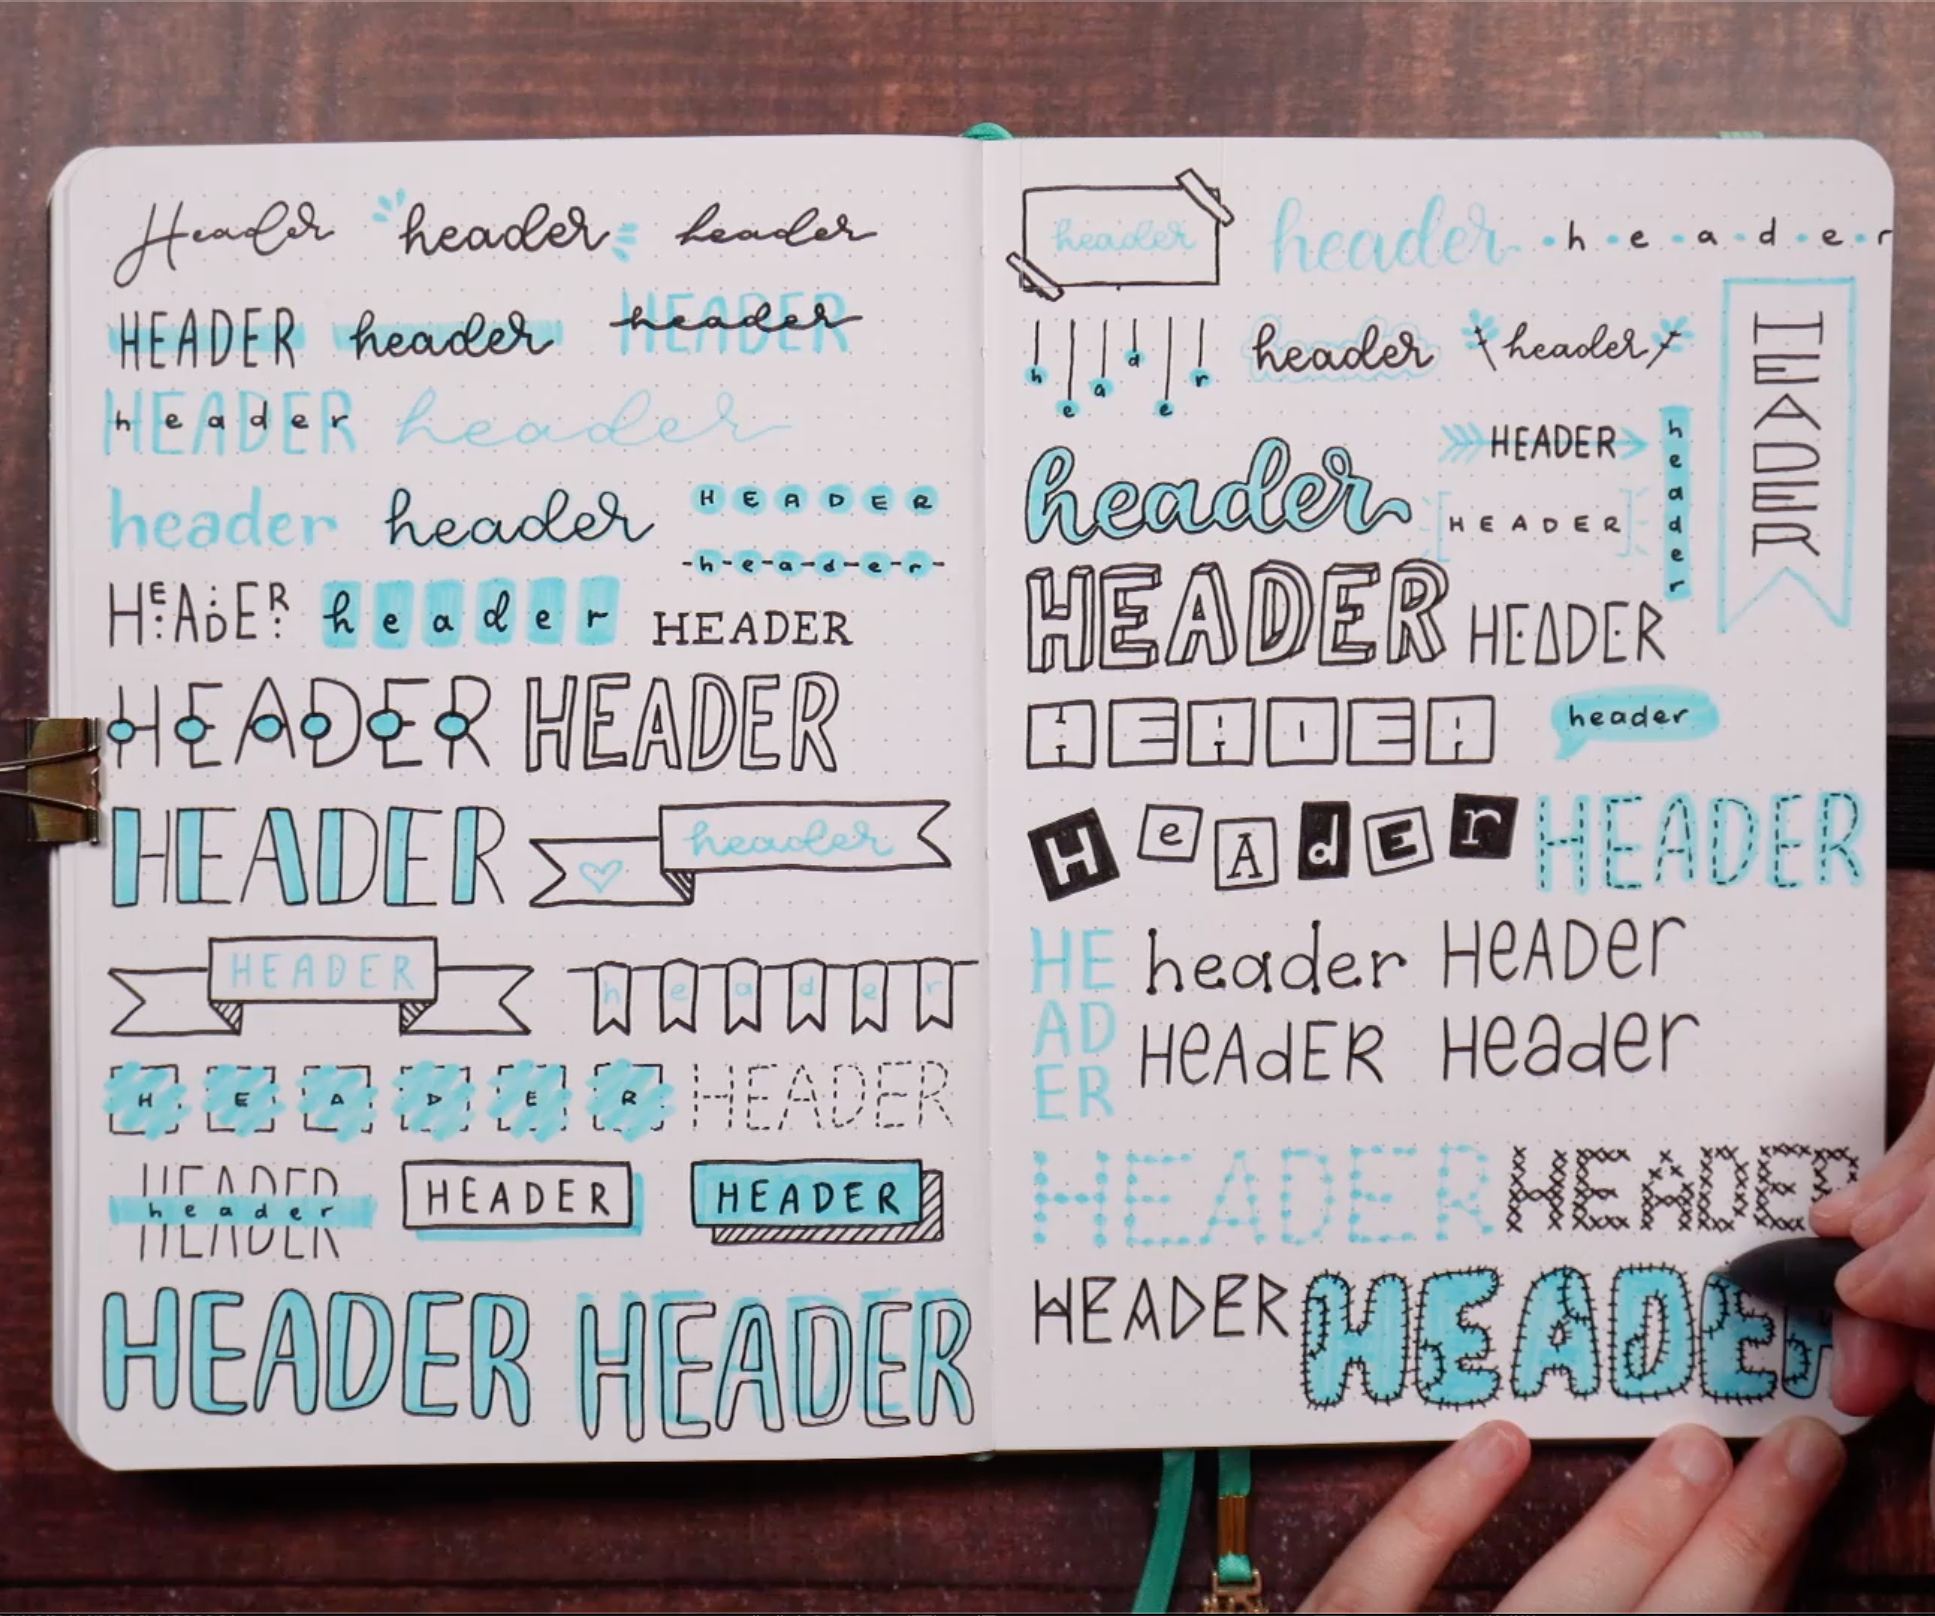 Header header header
HEADER header HEADER header
HEADER header header
header header HEADER
header
HEADER header HEADER
HEADER HEADER
HEADER header
HEADER header
HEADER HEADER
HEADER header HEADER HEADER
HEADER HEADER
header header header
header header header
HEADER
header HEADER header
HEADER
HEADER HEADER
HEADER header
HeAdEr HEADER
HE header HeADer
AD HeAdER Header
ER
HEADER HEADER
HEADER HEADER